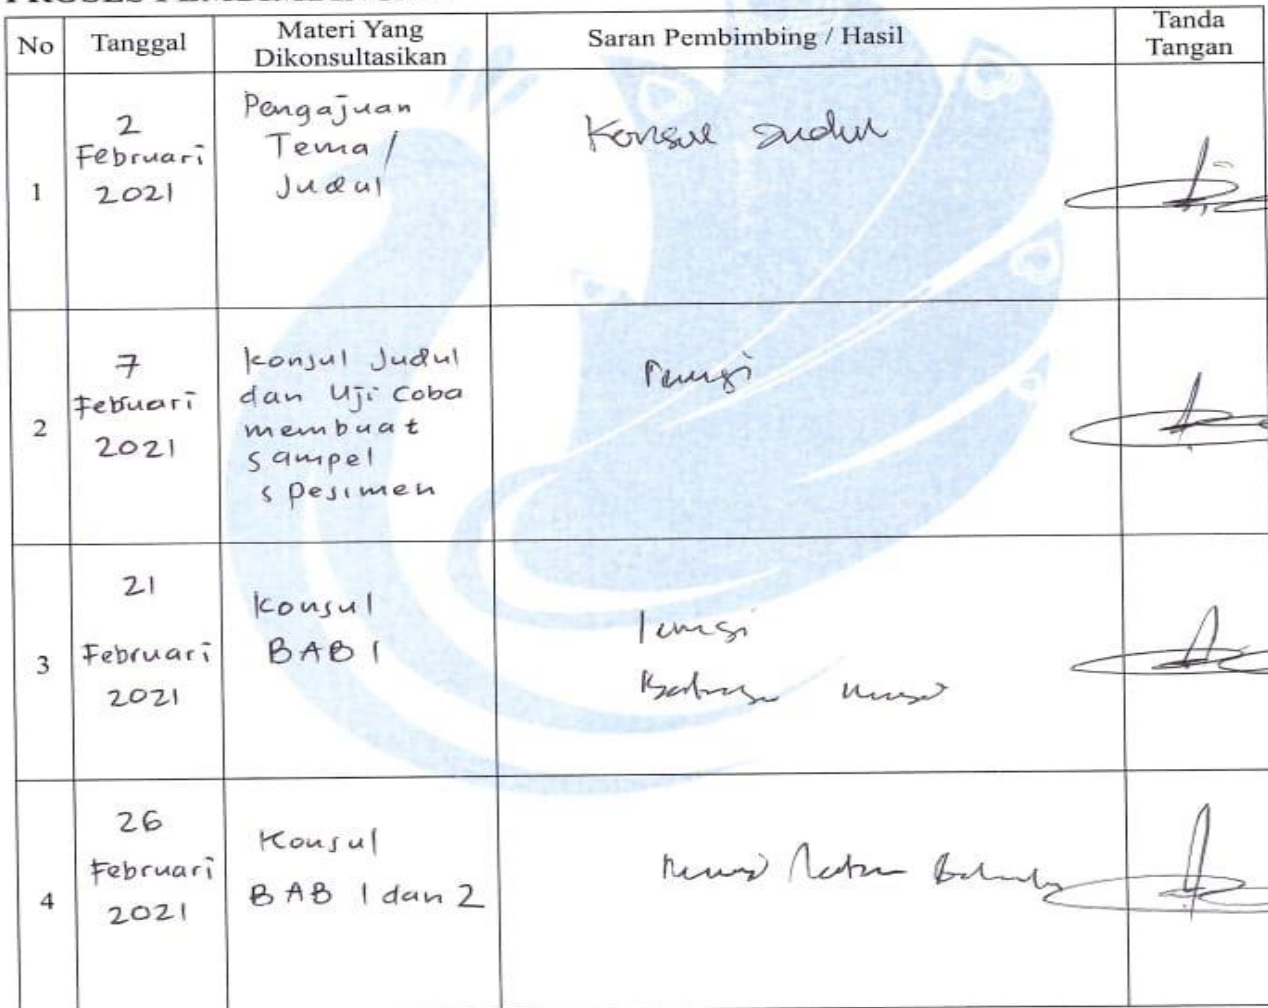 No
Tanggal
Materi Yang
Dikonsultasikan
Saran Pembimbing / Hasil
Tanda
Tangan
1
2
Februari
2021
Pengajuan
Tema /
Judul
Konsul Judul
2
7
Febuari
2021
Konsul Judul
dan Uji Coba
membuat
sampel
spesimen
3
21
Februari
2021
Konsul
BAB 1
4
26
Februari
2021
Konsul
BAB 1 dan 2